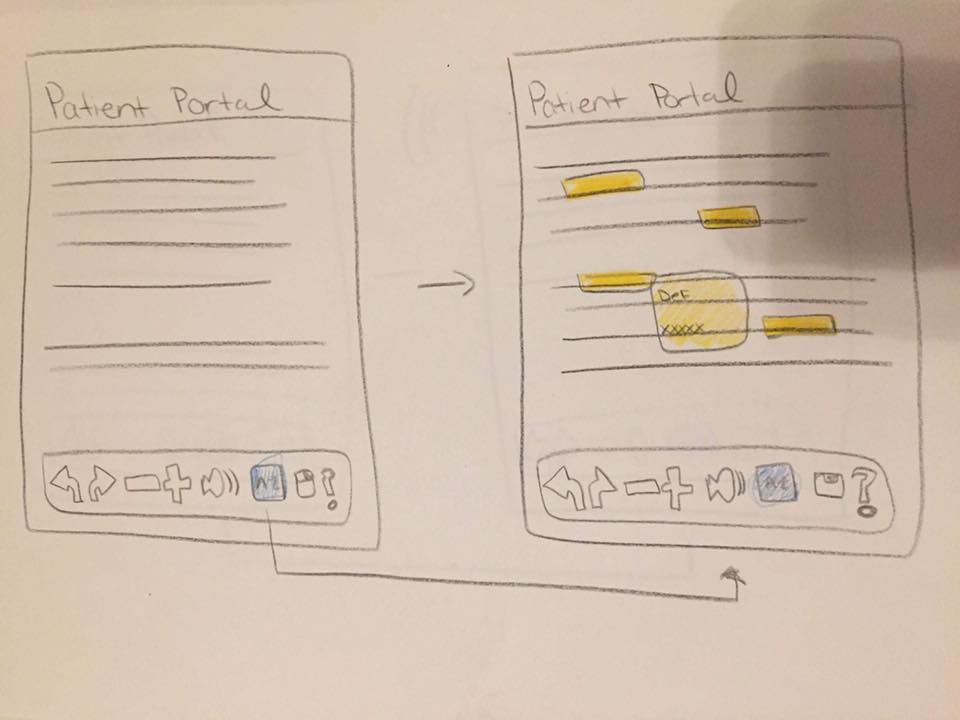 Patient Portal
Patient Portal
Def
xxxxx
A-Z
?
A-Z
?